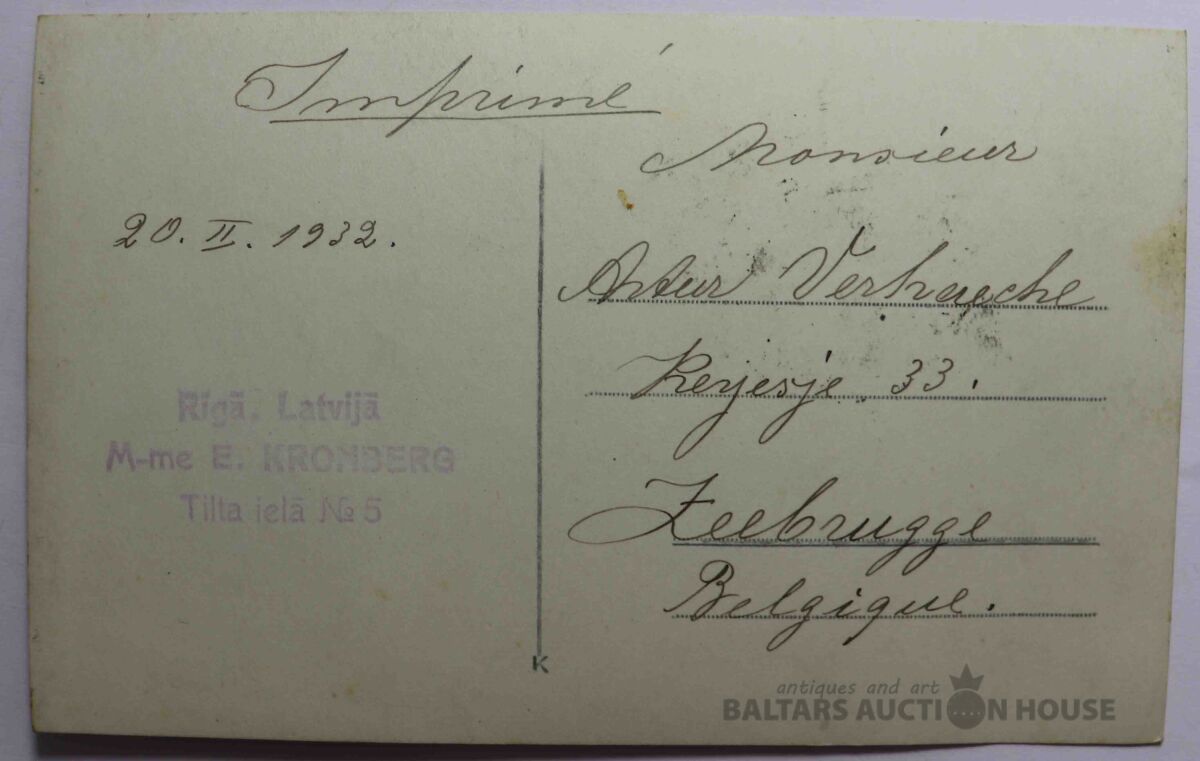 Imprimé
20. II. 1932.
Rīgā. Latvijā
M-me E. KRONBERG
Tilta ielā № 5
Monsieur
Artur Verhaeche
Kerjesje 33.
Zeebrugge
Belgique.
K
antiques and art
BALTARS AUCTION HOUSE